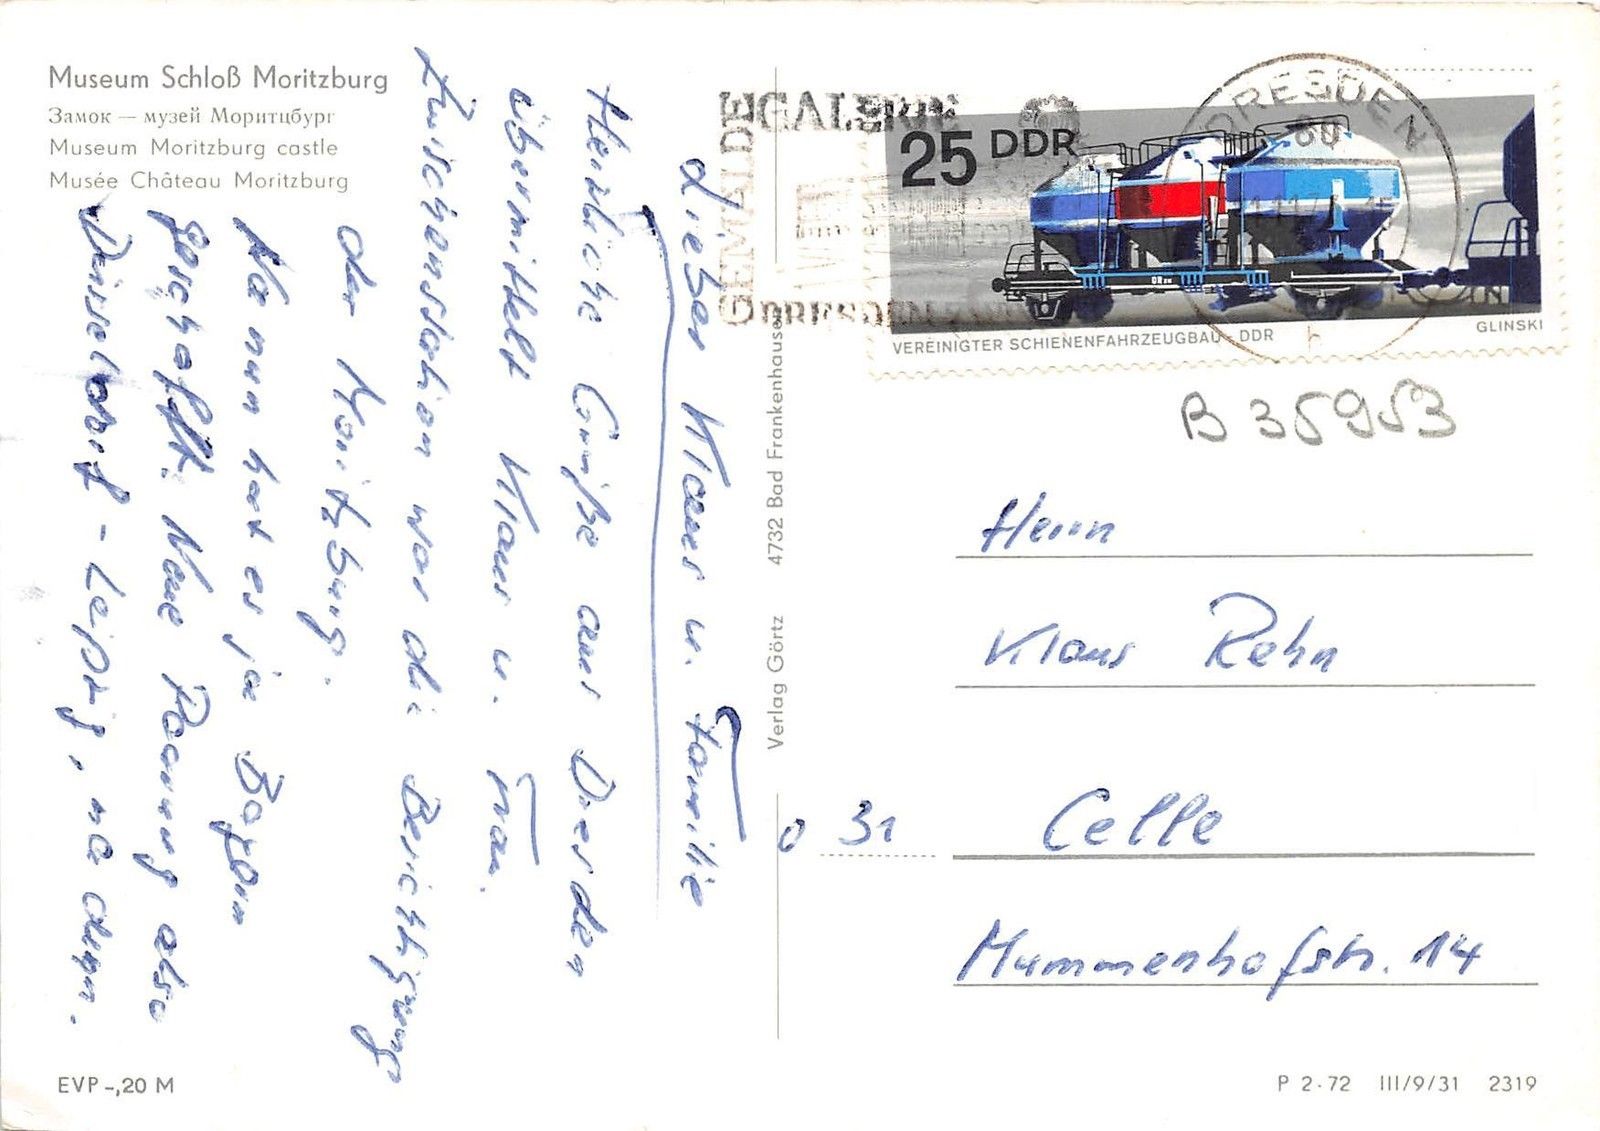 Museum Schloß Moritzburg
Замок — музей Моритцбург
Museum Moritzburg castle
Musée Château Moritzburg
Lieber Klaus u. Familie
Herzliche Grüße aus Dresden
übermittelt Klaus u. Frau.
Zwischenstation war die Besichtigung
der Moritzburg.
Na nun hat es ja Bayern
geschafft. Neue Paarung also
Düsseldorf - Leipzig, na dann.
EVP -,20 M
Verlag Görtz 4732 Bad Frankenhausen
GEMÄLDEGALERIE
DRESDEN
DRESDEN
80
h
25 DDR
DR
VEREINIGTER SCHIENENFAHRZEUGBAU - DDR
GLINSKI
B 35953
Herrn
Klaus Rehn
31 Celle
Mummenhofstr. 14
P 2·72 III/9/31 2319